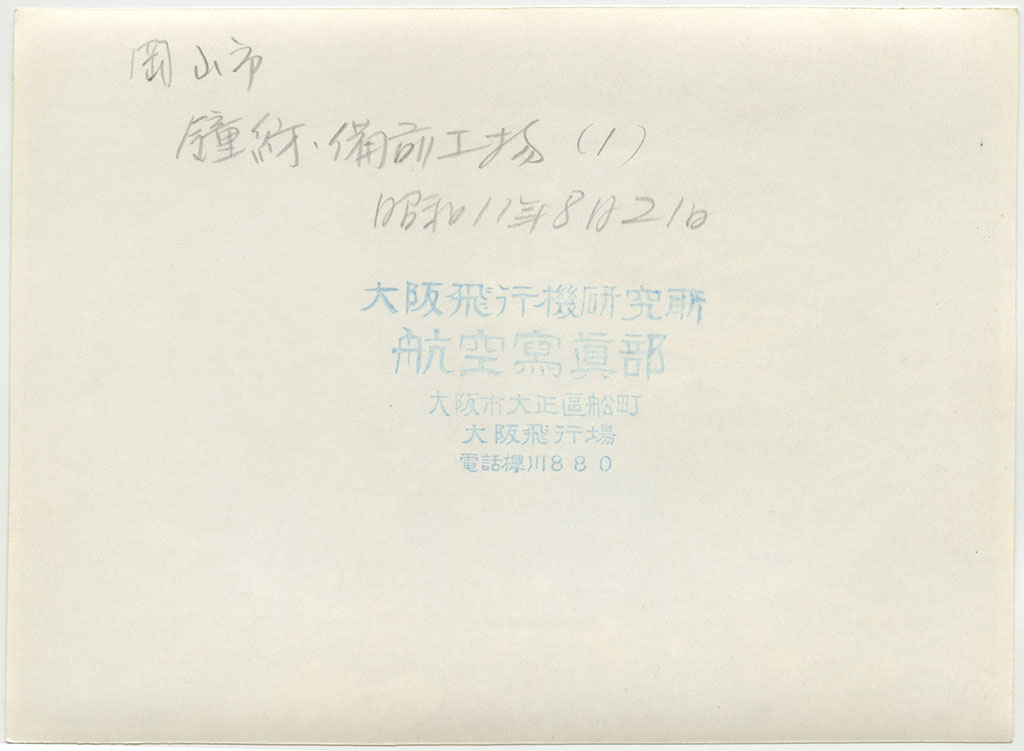 岡山市
鐘紡・備前工場（1）
昭和11年8月21日
大阪飛行機研究所
航空寫眞部
大阪市大正區船町
大阪飛行場
電話櫻川880